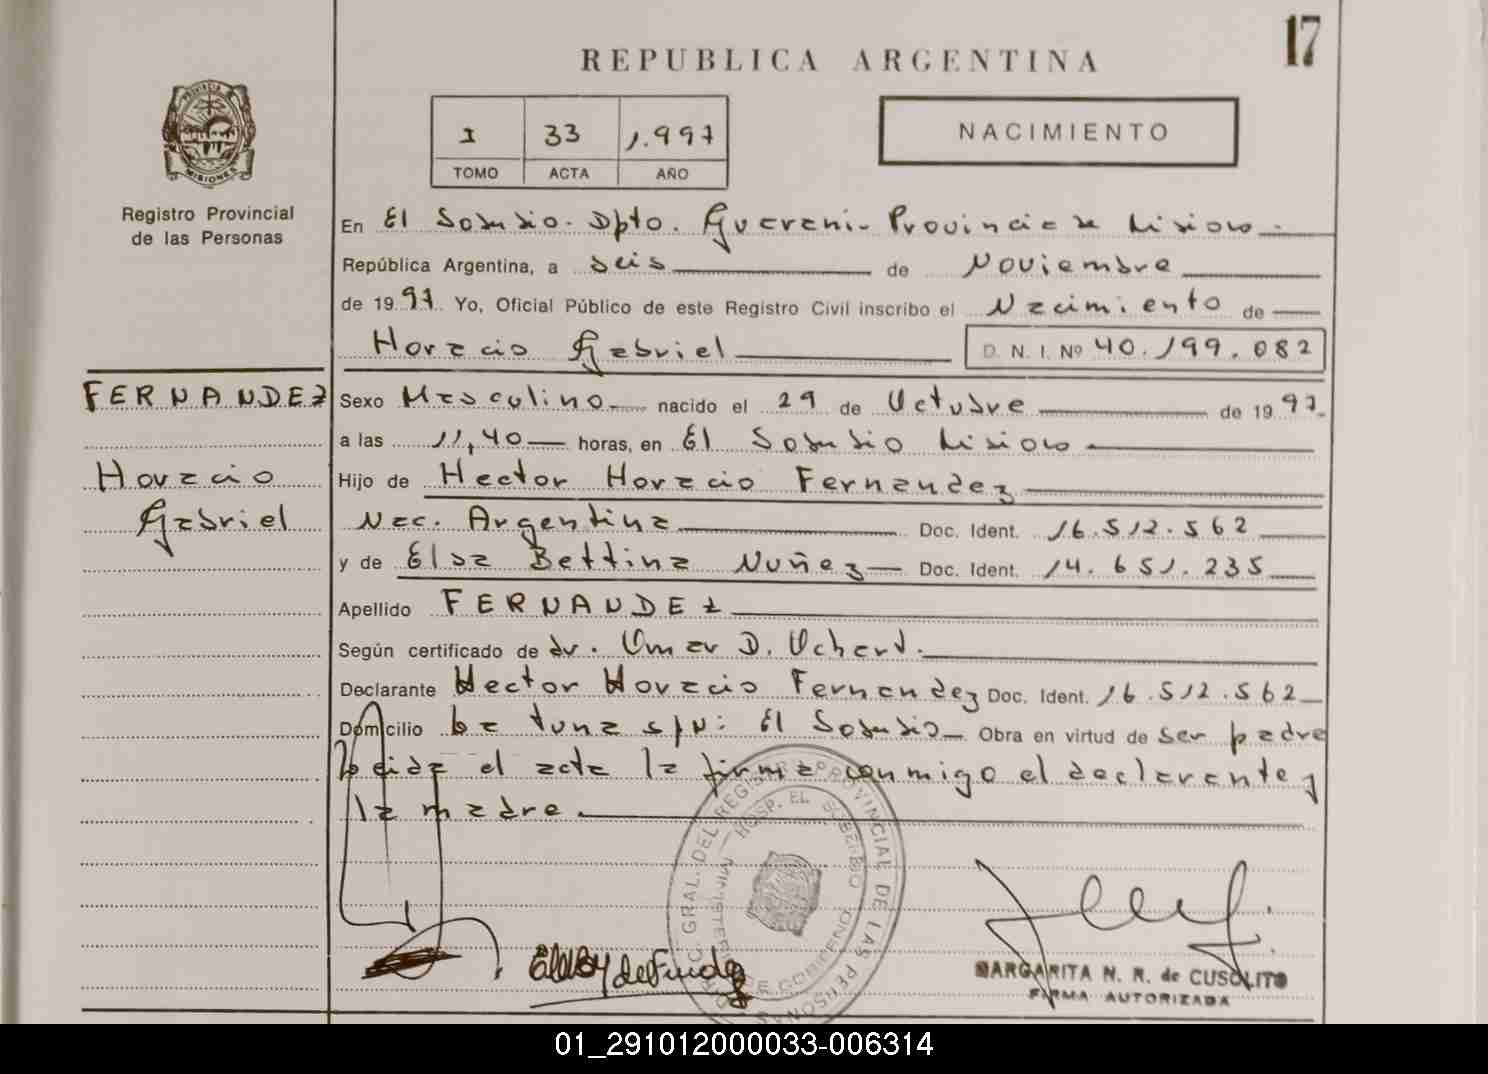 17
REPUBLICA ARGENTINA
PROVINCIA DE
MISIONES
1 33 1.997
TOMO ACTA AÑO
NACIMIENTO
Registro Provincial
de las Personas
En El Soberbio. Dpto. Guarani. Provincia de Misiones
República Argentina, a seis de Noviembre
de 1997. Yo, Oficial Público de este Registro Civil inscribo el Nacimiento de
Horacio Gabriel D. N. I. Nº 40.199.082
FERNANDEZ
Horacio
Gabriel
Sexo Masculino nacido el 29 de Octubre de 1997
a las 11,40 horas, en El Soberbio Misiones
Hijo de Hector Horacio Fernandez
Nac. Argentina Doc. Ident. 16.512.562
y de Elsa Bettina Nuñez Doc. Ident. 14.651.235
Apellido FERNANDEZ
Según certificado de dr. Omar D.
Declarante Hector Horacio Fernandez Doc. Ident. 16.512.562
Domicilio La tuna s/N: El Soberbio Obra en virtud de ser padre
Leida el acta la firma conmigo el declarante y
la madre.
DIREC. GRAL. DEL REGISTRO PROVINCIAL DE LAS PERSONAS
HOSP. EL SOBERBIO
MINISTERIO DE GOBIERNO
MARGARITA N. R. de CUSOLITO
FIRMA AUTORIZADA
01_291012000033-006314